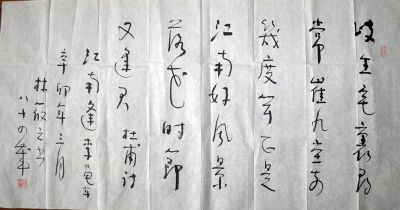 岐王宅裏尋
常崔九堂前
幾度聞正是
江南好風景
落花時節
又逢君 杜甫詩
江南逢李龜年
辛卯年三月
林筱之書
八十四歲